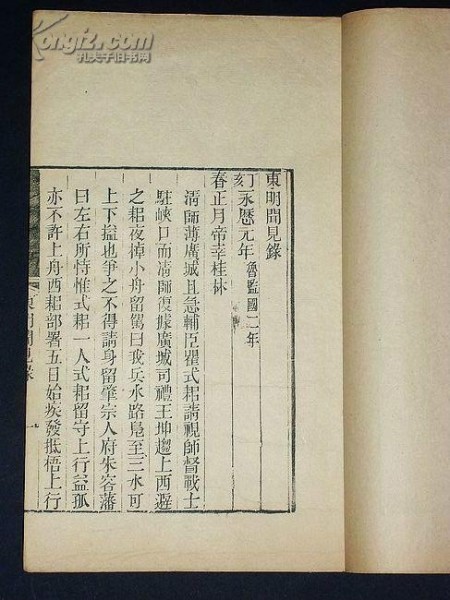 Kongfz.com
孔夫子旧书网
東明聞見錄
丁亥永歷元年魯監國二年
春正月帝幸桂林
清師薄廣城且急輔臣瞿式耜請視師督戰士
駐峽口而清師復據廣城司禮王坤趨上西避
之耜夜掉小舟留駕曰我兵水路鳧至三水可
上下搤也爭之不得請身留肇宗人府朱容藩
曰左右所恃惟式耜一人式耜留守上行益孤
亦不許上舟西耜部署五日始疾發抵梧上行
東明聞見錄
一